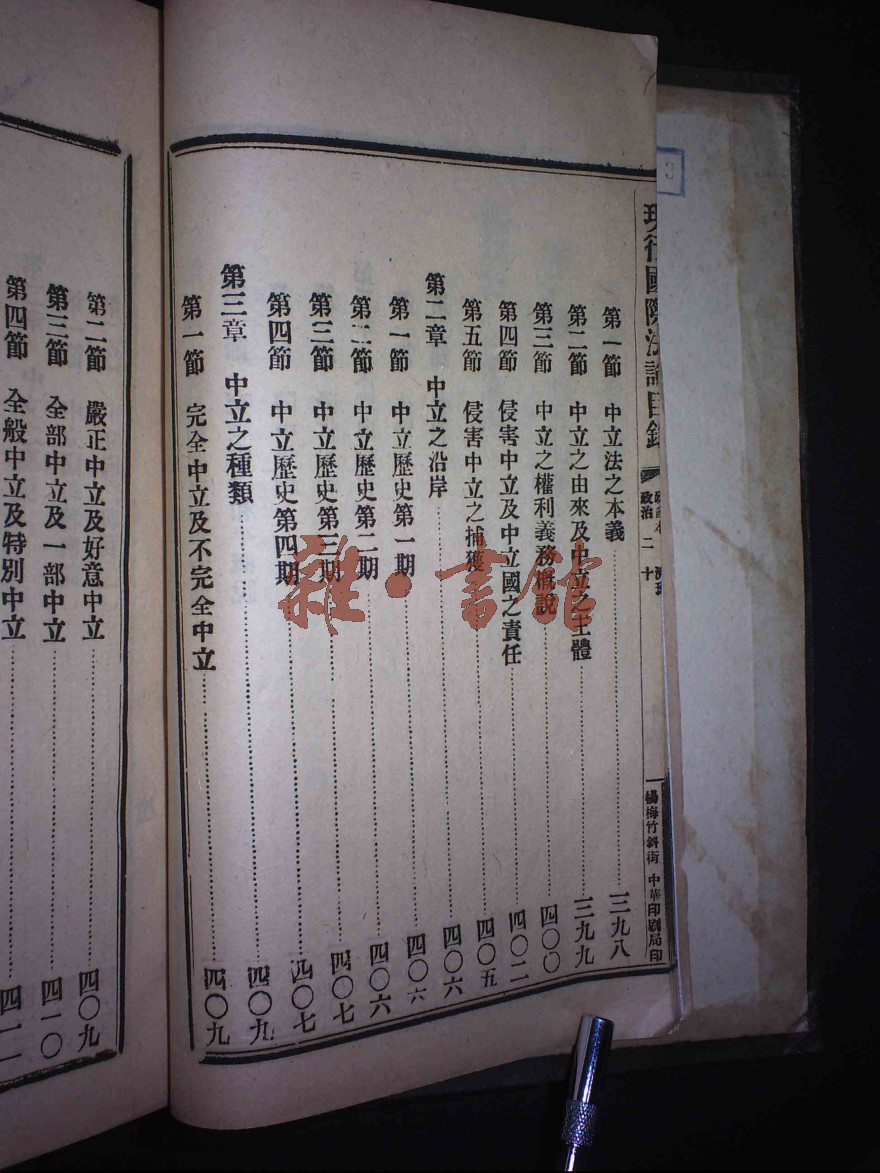 現行國際法論目錄
政治 二 十
楊梅竹斜街 中華印刷局印
第一節 中立法之本義 三九八
第二節 中立之由來及中立之主體 三九九
第三節 中立之權利義務概說 四〇〇
第四節 侵害中立及中立國之責任 四〇二
第五節 侵害中立之捕獲 四〇五
第二章 中立之沿岸 四〇六
第一節 中立歷史第一期 四〇六
第二節 中立歷史第二期 四〇六
第三節 中立歷史第三期 四〇七
第四節 中立歷史第四期 四〇七
第三章 中立之種類 四〇九
第一節 完全中立及不完全中立 四〇九
第二節 嚴正中立及好意中立 四〇九
第三節 全部中立及一部中立 四一〇
第四節 全般中立及特別中立 四一一
雜·書館
3